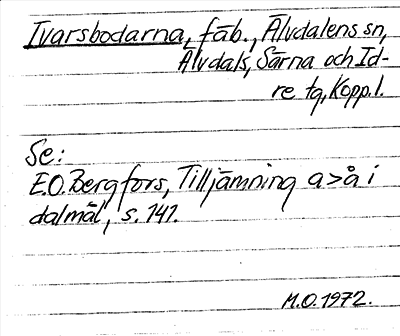 Ivarsbodarna, fäb., Älvdalens sn,
Älvdals, Särna och Id-
re tg, Kopp.l.
Se:
E.O. Bergfors, Tilljämning a>å i
dalmål, s. 141.
M.O. 1972.